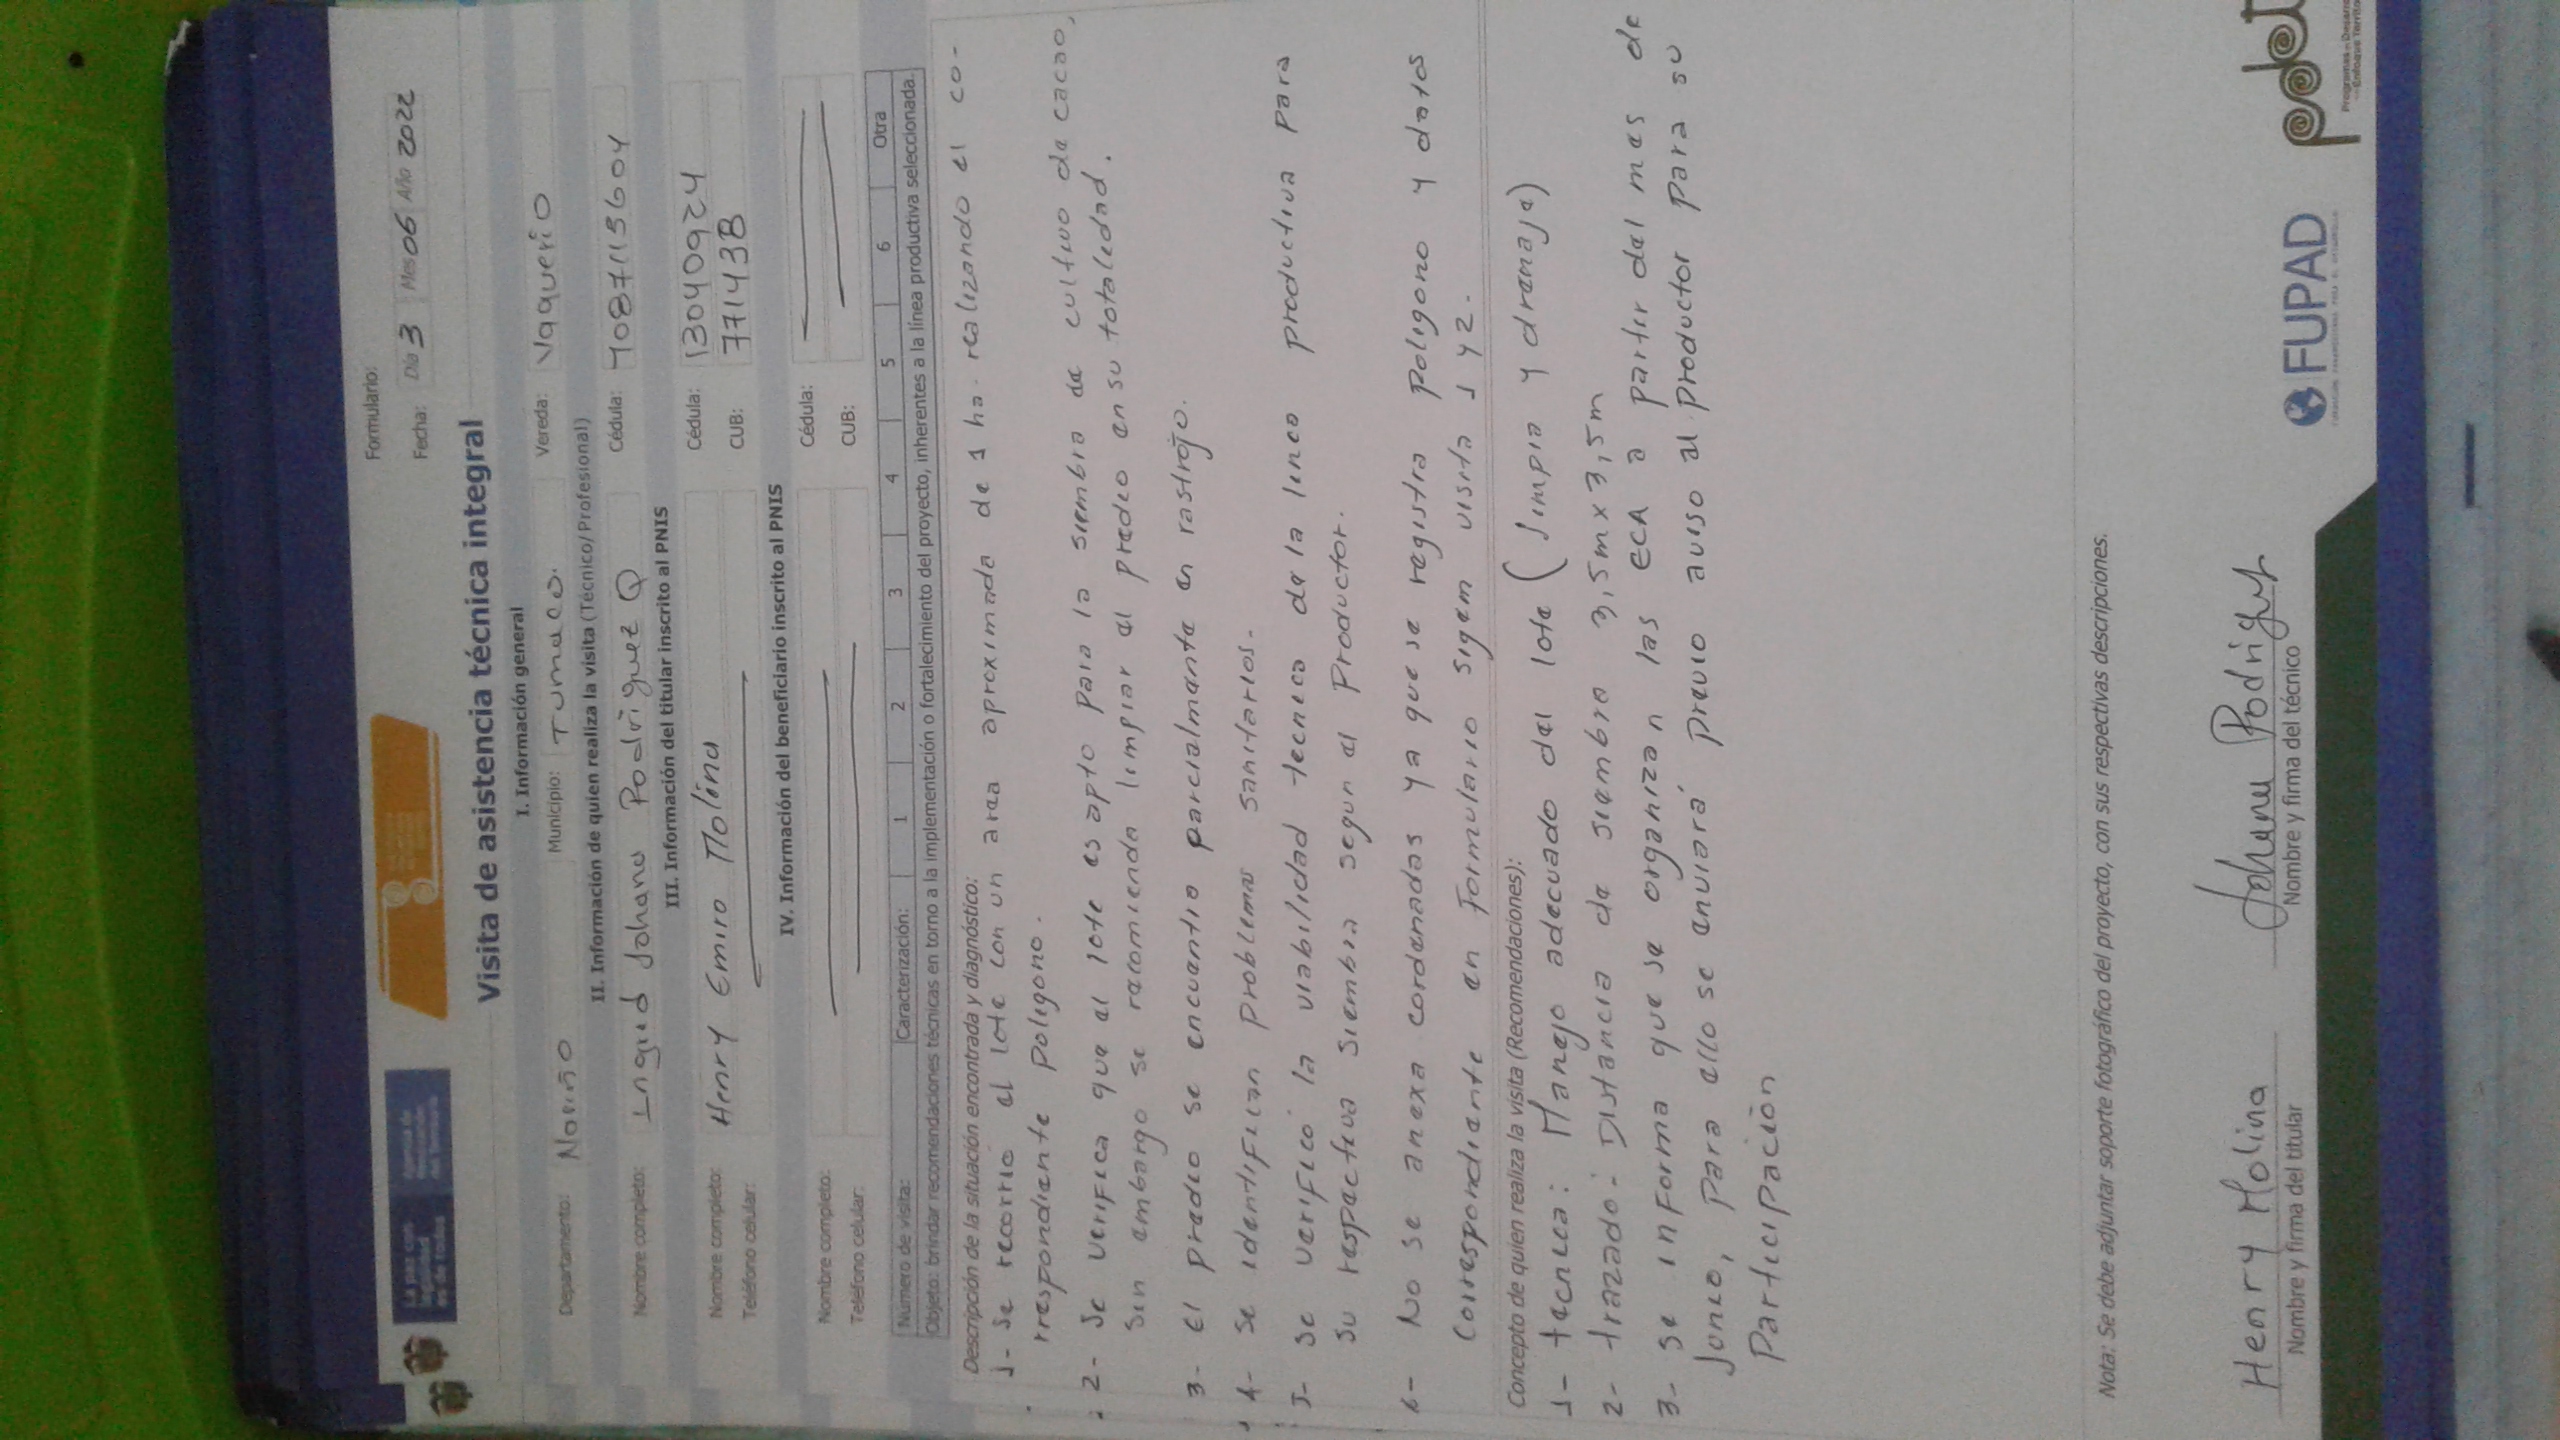 Formulario:
Fecha: Día 3 Mes 06 Año 2022
Visita de asistencia técnica integral
I. Información general
Departamento: Nariño Municipio: Tumaco. Vereda: Vaquerio
II. Información de quien realiza la visita (Técnico/ Profesional)
Nombre completo: Ingrid Johana Rodriguez Q Cédula:
III. Información del titular inscrito al PNIS
Nombre completo: Henry Emiro Molina Cédula: 13040924
Teléfono celular: CUB:
IV. Información del beneficiario inscrito al PNIS
Nombre completo: Cédula:
Teléfono celular: CUB:
Número de visita: Caracterización: 1 2 3 4 5 6 Otra
Objeto: brindar recomendaciones técnicas en torno a la implementación o fortalecimiento del proyecto, inherentes a la línea productiva seleccionada.
Descripción de la situación encontrada y diagnóstico:
1- Se recorrio el lote con un area aproximada de 1 ha. realizando el co-
rrespondiente poligono.
2- Se verifica que el lote es apto para la siembra de cultivo de cacao,
sin embargo se recomienda limpiar el predio en su totaledad.
3- El predio se encuentra parcialmente en rastrojo.
4- Se identifican problemas sanitarios.
5- Se verifico la viabilidad tecnica de la linea productiva para
su respectiva siembra segun el productor.
6- No se anexa cordenadas ya que se registra poligono y datos
correspondiente en Formulario sigem visita 1 y 2.
Concepto de quien realiza la visita (Recomendaciones):
1- tecnica: Manejo adecuado del lote (limpia y drenaje)
2- trazado: Distancia de siembra 3,5m x 3,5m
3- Se informa que se organizan las ECA a partir del mes de
Junio, Para ello se enviará previo aviso al productor para su
Participación
Nota: Se debe adjuntar soporte fotográfico del proyecto, con sus respectivas descripciones.
Henry Molina Johana Rodriguez
Nombre y firma del titular Nombre y firma del técnico
FUPAD
pdet